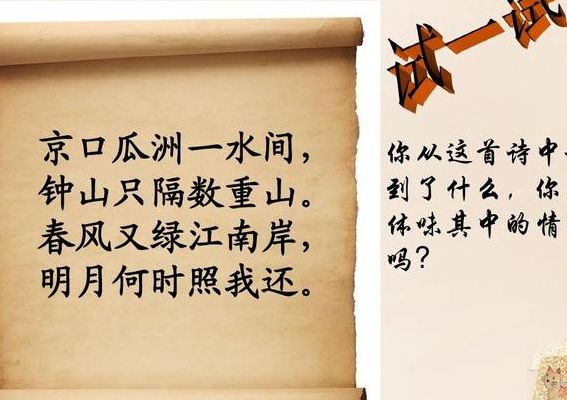 京口瓜洲一水间，
钟山只隔数重山。
春风又绿江南岸，
明月何时照我还。
试一试
你从这首诗中
到了什么，你
体味其中的情
吗？